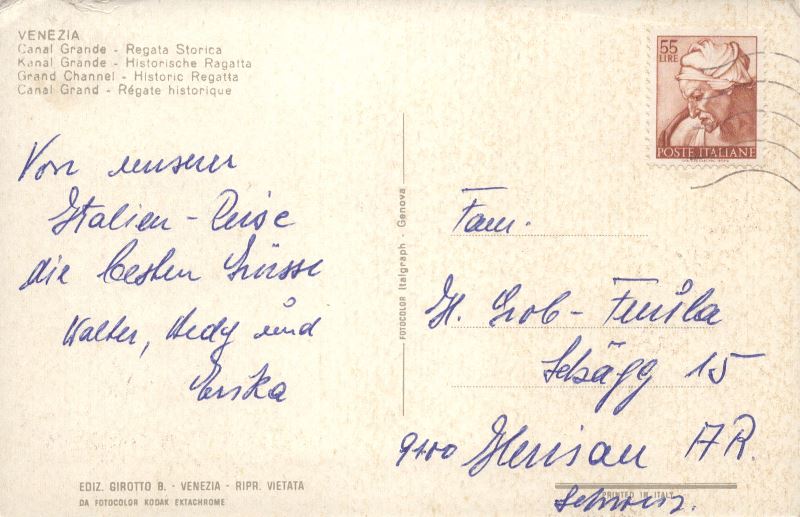 VENEZIA
Canal Grande - Regata Storica
Kanal Grande - Historische Ragatta
Grand Channel - Historic Regatta
Canal Grand - Régate historique
55
LIRE
POSTE ITALIANE
Von unserer
Italien-Reise
die besten Grüsse
Walter, Hedy und
Erika
FOTOCOLOR Italgraph - Genova
Fam.
H. Grob-
Schägg 15
9100 Herisau AR.
Schweiz.
EDIZ. GIROTTO B. - VENEZIA - RIPR. VIETATA
DA FOTOCOLOR KODAK EKTACHROME
PRINTED IN ITALY